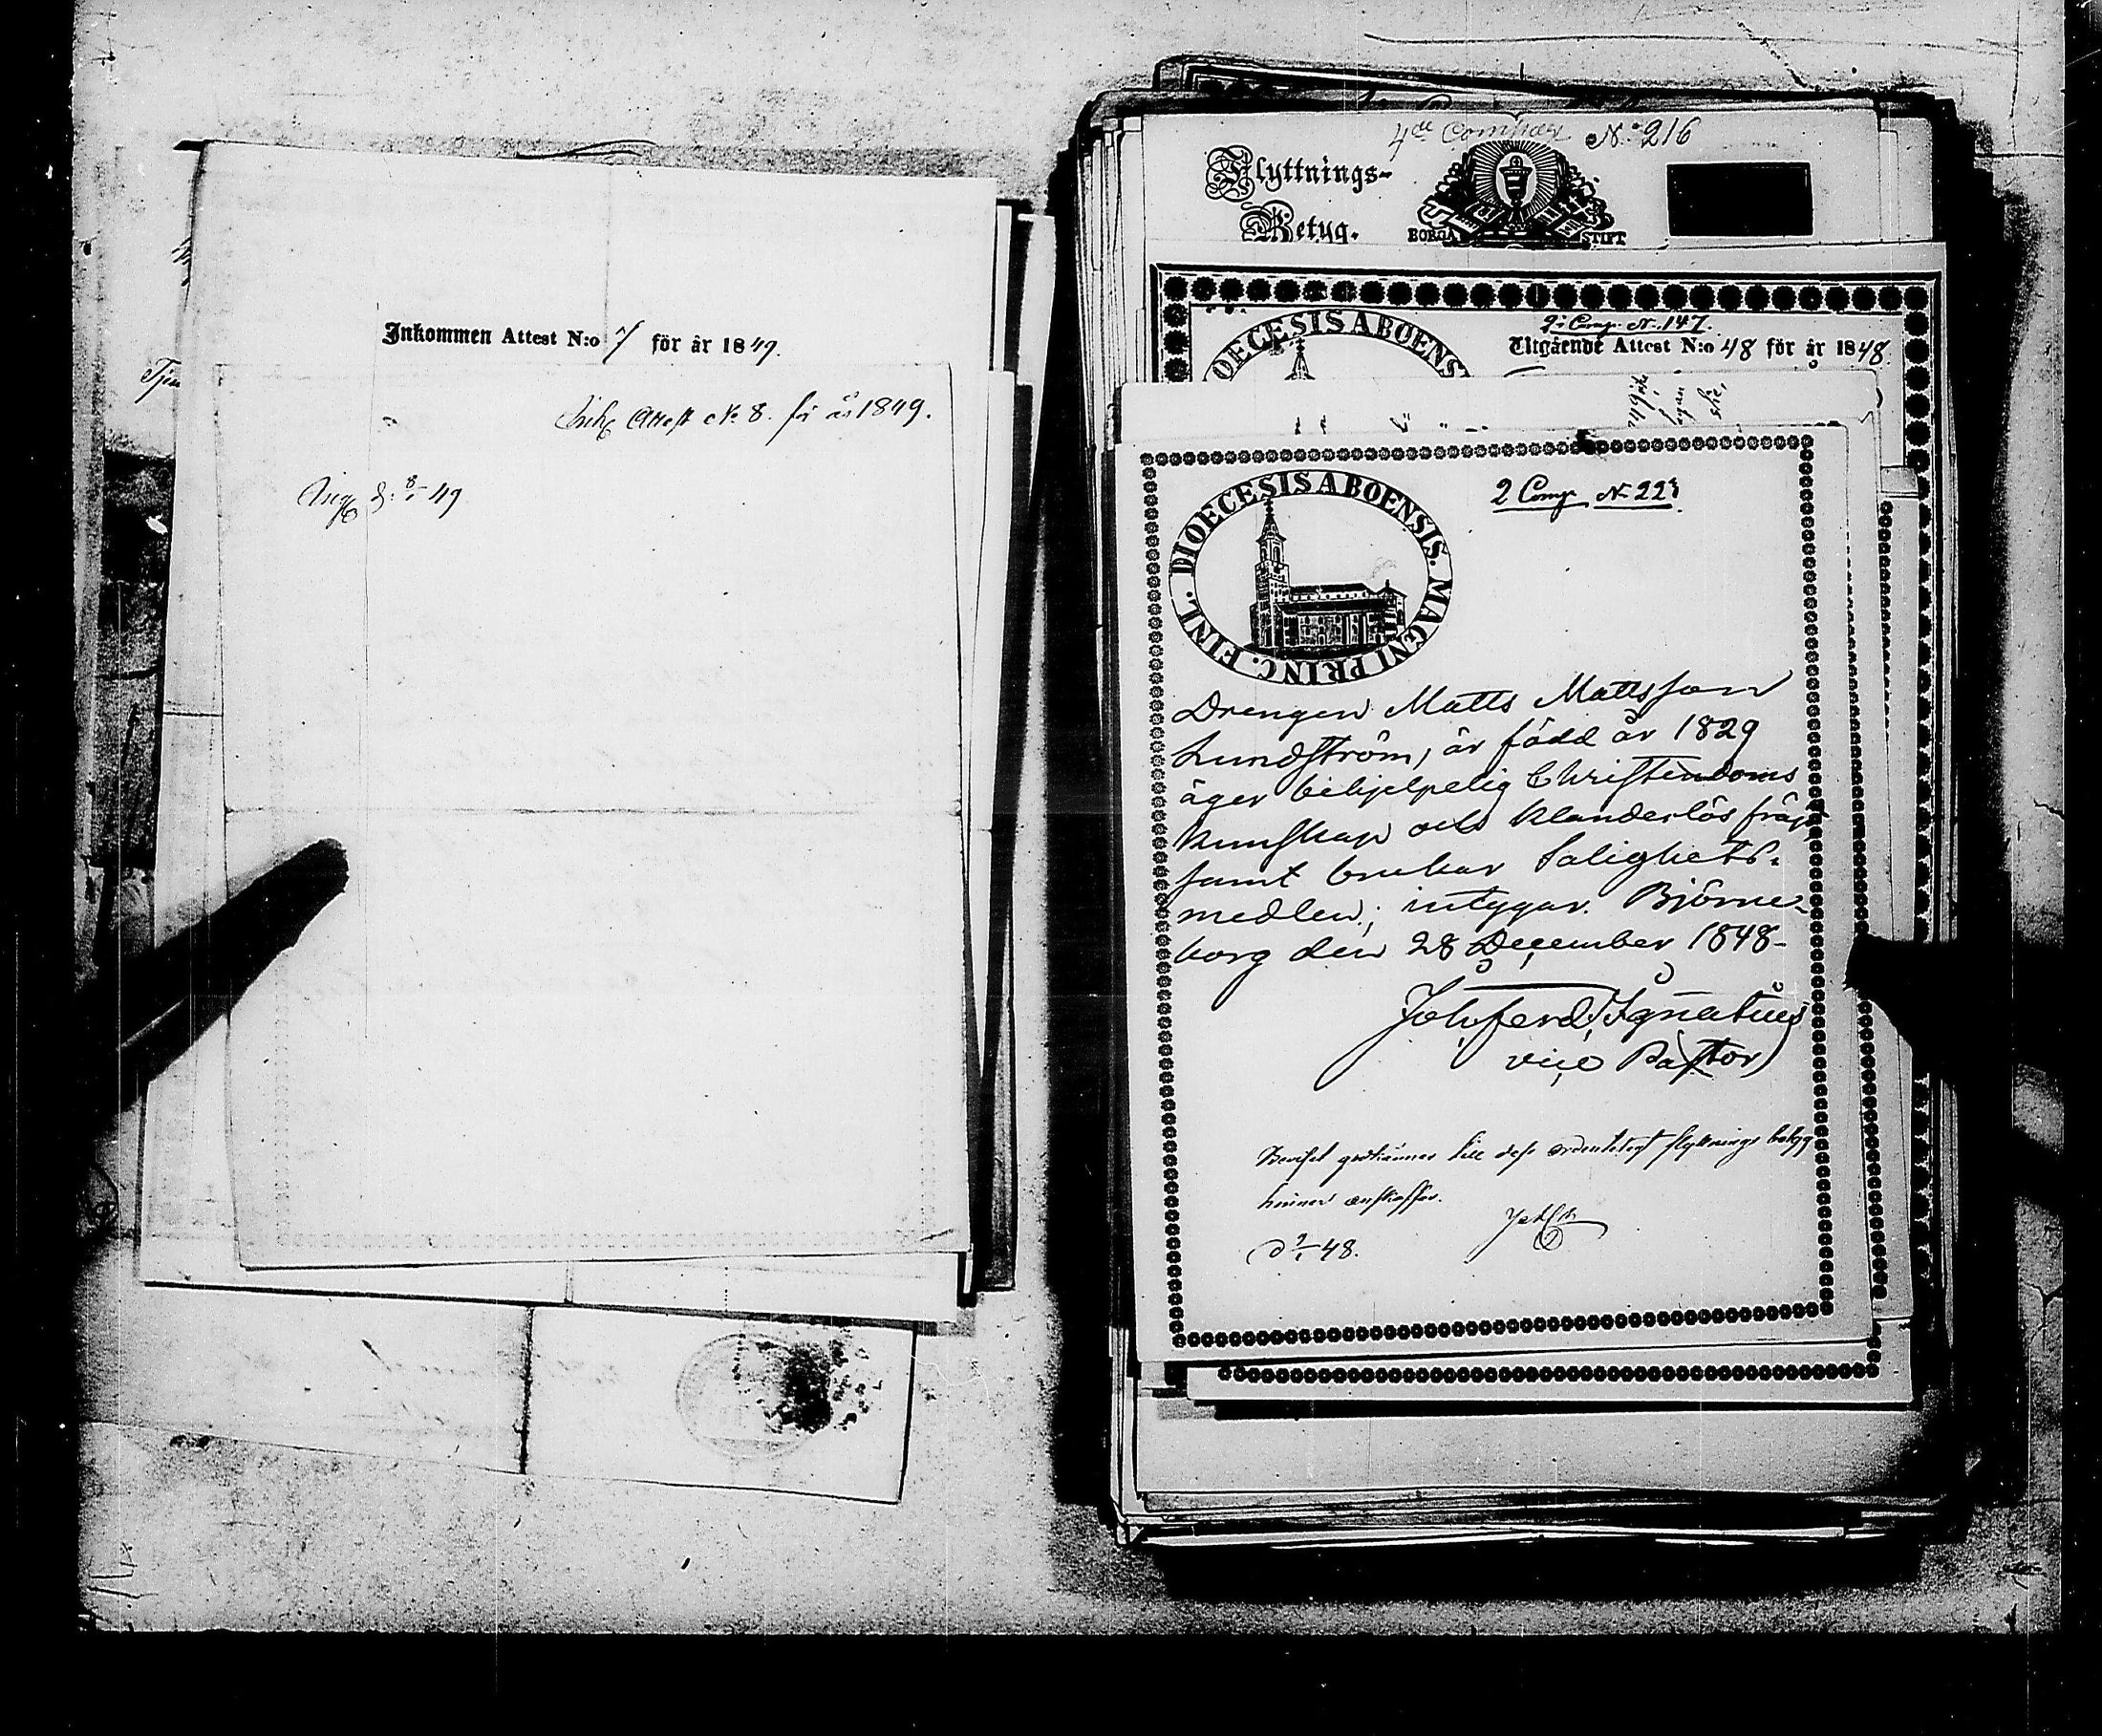 Inkommen Attest N:o 7 för år 1849.
Ink Attest No 8. för år 1849.
49
4de Compag No 216
Flyttnings-
Betyg.
BORGA STIFT
2: Comp. N. 147.
Utgående Attest N:o 48 för år 1848.
DIOECESIS ABOENS
2 Comp N 223
DIOECESIS ABOENSIS. MAGNI PRINC. FINL.
Drengen Matts Mattsson
Lundström, är född år 1829
äger behjelpelig Christendoms
kunskap och klanderlös fräjd
samt brukar Salighets-
medlen; intygar. Björne-
borg den 28 December 1848-
Joh. Ferd. Ignatius
vice Pastor
Beviset godkännes till dess ordentligt flyttnings betyg
hinner anskaffas.
d 2/1 48.